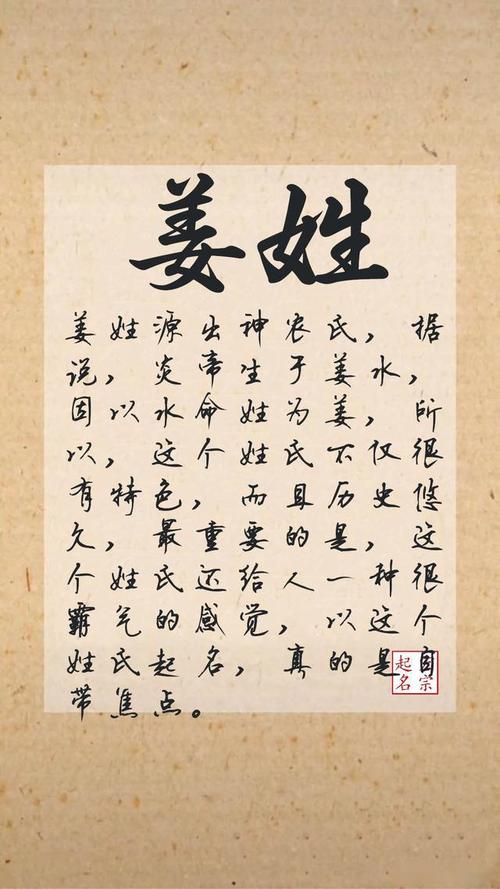 姜姓
姜姓源出神农氏，据
说，炎帝生于姜水，
因以水命姓为姜，所
以，这个姓氏不仅很
有特色，而且历史悠
久，最重要的是，这
个姓氏还给人一种很
霸气的感觉，以这个
姓氏起名，真的是自
带焦点。
起名
宗